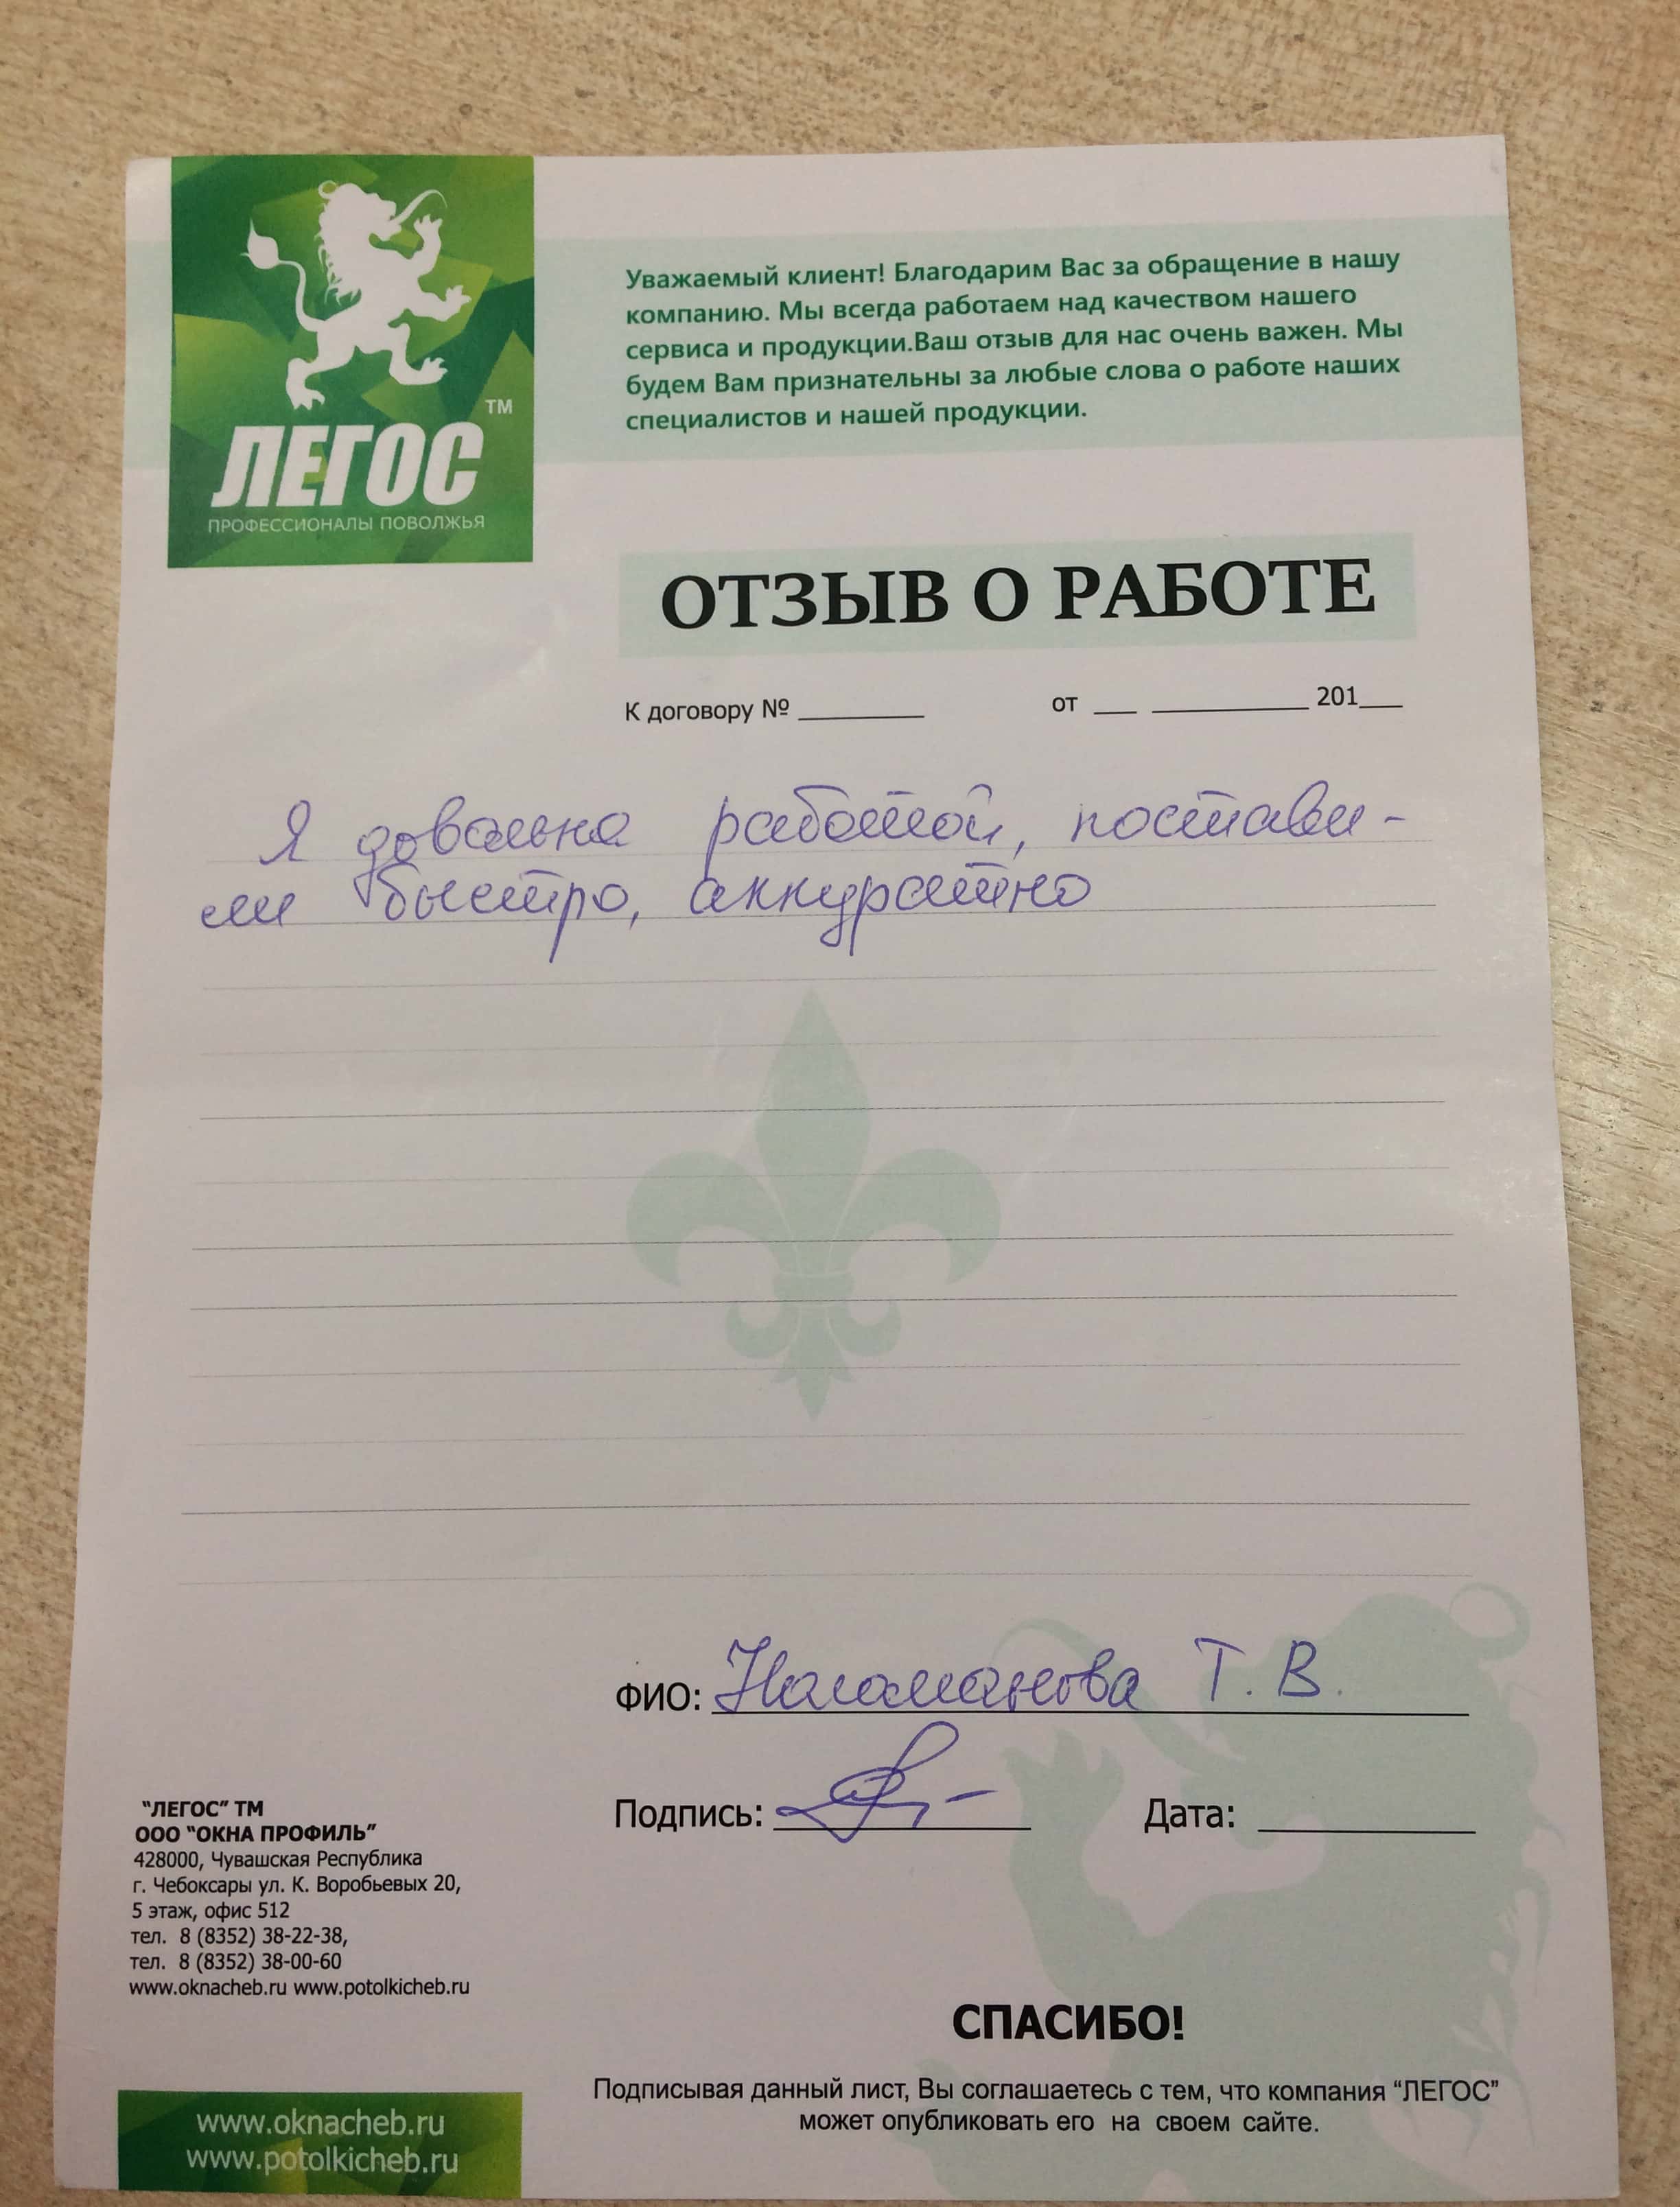 ЛЕГОС
TM
ПРОФЕССИОНАЛЫ ПОВОЛЖЬЯ
Уважаемый клиент! Благодарим Вас за обращение в нашу
компанию. Мы всегда работаем над качеством нашего
сервиса и продукции.Ваш отзыв для нас очень важен. Мы
будем Вам признательны за любые слова о работе наших
специалистов и нашей продукции.
ОТЗЫВ О РАБОТЕ
К договору № ________ от ___ __________ 201___
Я довольна работой, постави-
ли быстро, аккуратно
ФИО: Т. В.
Подпись: Дата:
"ЛЕГОС" ТМ
ООО "ОКНА ПРОФИЛЬ"
428000, Чувашская Республика
г. Чебоксары ул. К. Воробьевых 20,
5 этаж, офис 512
тел. 8 (8352) 38-22-38,
тел. 8 (8352) 38-00-60
www.oknacheb.ru www.potolkicheb.ru
СПАСИБО!
Подписывая данный лист, Вы соглашаетесь с тем, что компания "ЛЕГОС"
может опубликовать его на своем сайте.
www.oknacheb.ru
www.potolkicheb.ru